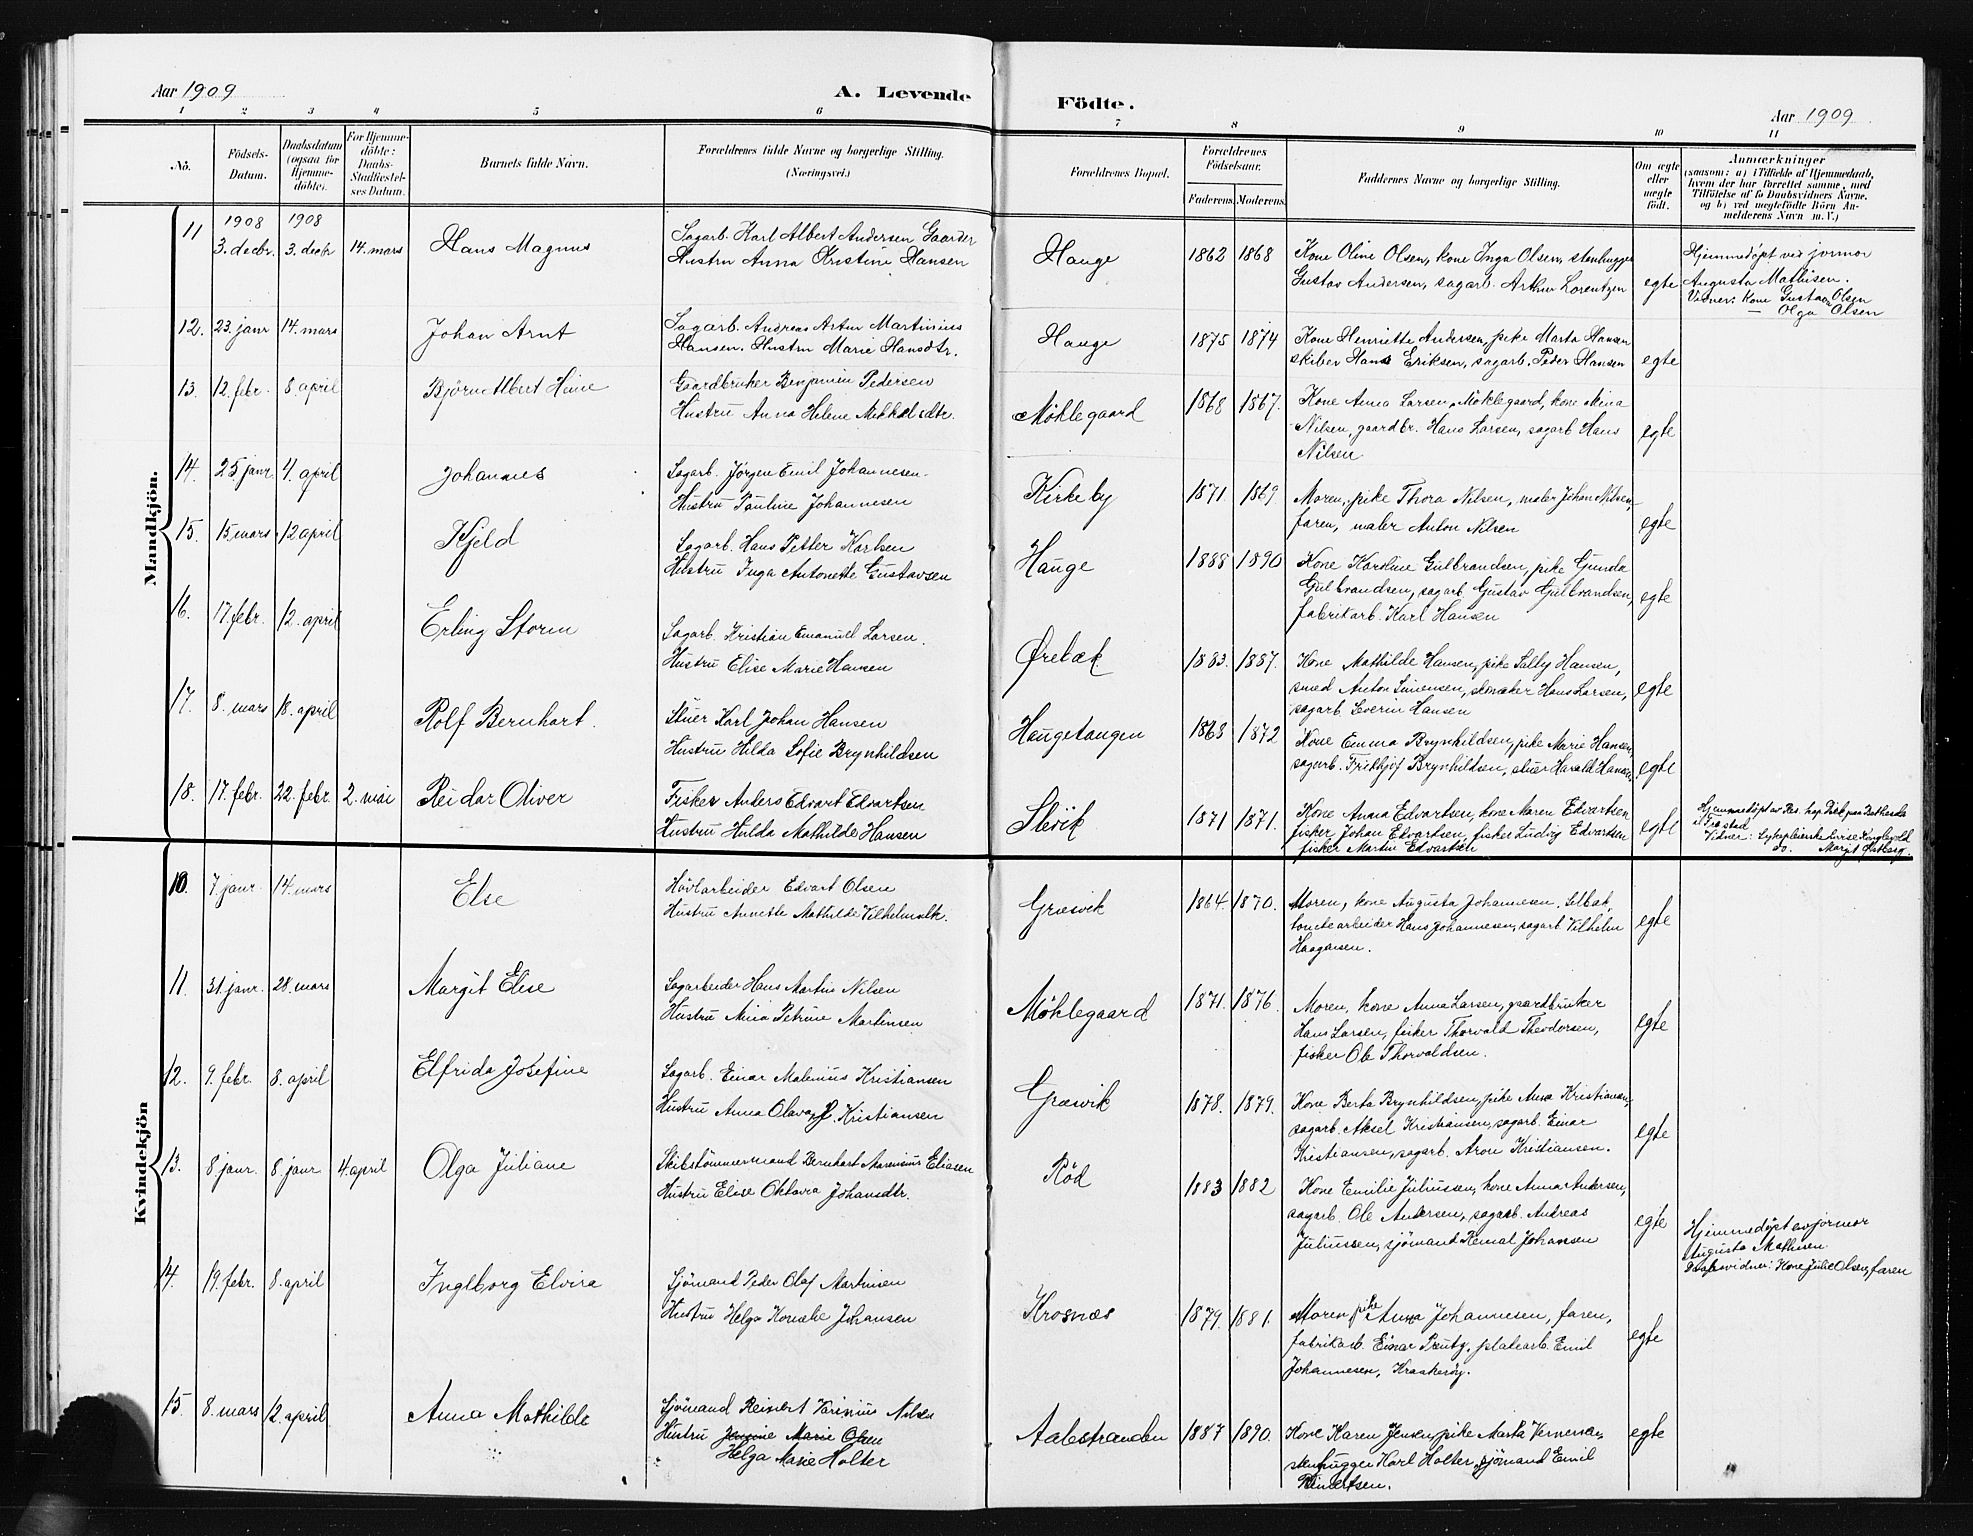 Aar 1909
A. Levende
Födte.
Aar 1909
1 2 3 4 5 6 7 8 9 10 11
No.
Födsels-
Datum.
Daabsdatum
(ogsaa for
Hjemme-
döbte).
For Hjemme-
döbte:
Daabs-
Stadfæstel-
ses Datum.
Barnets fulde Navn.
Forældrenes fulde Navne og borgerlige Stilling.
(Næringsvei.)
Forældrenes Bopæl.
Forældrenes
Födselsaar.
Faderens. Moderens.
Faddernes Navne og borgerlige Stilling.
Om ægte
eller
uægte
födt.
Anmærkninger
(saasom: a) i Tilfælde af Hjemmedaab,
hvem der har forrettet samme, med
Tilföielse af to Daabsvidners Navne.
og b) ved uægtefödte Börn An-
melderens Navn m. V.)
Mandkjön.
11 1908 3. decbr. 1908 3. decbr 14. mars Hans Magnus
Sagarb. Karl Albert Andersen Gaarder
Hustru Anna Kristine Hansen
Hauge 1862 1868
Kone Oline Olsen, kone Inga Olsen, stenhugger
Gustav Andersen, sagarb. Arthur Lorentzen
egte
Hjemmedöpt ved jormor
Augusta Mathisen.
Vidner: Kone Gustava Olsen
— Olga Olsen
12. 23. janr 14. mars Johan Arnt
Sagarb. Andreas Artur Martinius
Hansen. Hustru Marie Hansdtr.
Hauge 1875 1874
Kone Henriette Andersen, pike Marta Hansen
skiber Hans Eriksen, sagarb. Peder Hansen
egte
13. 12. febr. 8. april Bjørn Albert Hine
Gaardbruker Benjamin Pedersen
Hustru Anna Helene Mikkelsdtr.
Møklegaard 1868 1867.
Kone Anna Larsen, Møklegaard, kone Mina
Nilsen, gaardbr. Hans Larsen, sagarb Hans
Nilsen
egte
14. 25. janr. 4. april Johannes
Sagarb. Jörgen Emil Johannesen.
Hustru Pauline Johannesen
Kirkeby 1871 1869
Moren, pike Thora Nilsen, maler Johan Nilsen,
faren, maler Anton Nilsen
egte
15. 15. mars 12 april Kjeld
Sagarb. Hans Petter Karlsen
Hustru Inga Antonette Gustavsen
Hauge 1888 1890
Kone Karoline Gulbrandsen, pike Gunda
Gulbrandsen, sagarb. Gustav Gulbrandsen,
fabrikarb. Karl Hansen
egte
16. 17. febr. 12. april Erling Storm
Sagarb. Kristian Emanuel Larsen.
Hustru Elise Marie Hansen
Ørebæk 1883. 1887.
Kone Mathilde Hansen, pike Sally Hansen,
smed Anton Simensen, skomaker Hans Larsen,
sagarb. Severin Hansen
egte
17. 8. mars 18. april Rolf Bernhart.
Stuer Karl Johan Hansen
Hustru Hilda Sofie Brynhildsen
Haugetangen 1868 1872
Kone Emma Brynhildsen, pike Marie Hansen,
sagarb. Fridthjof Brynhildsen, stuer Harald Hansen,
egte
18. 17. febr. 22. febr. 2. mai Reidar Oliver
Fisker Anders Edvart Edvartsen
Hustru Hulda Mathilde Hansen
Slevik 1871 1871.
Kone Anna Edvartsen, kone Maren Edvartsen
fisker Johan Edvartsen, fisker Ludvig Edvartsen
fisker Martin Edvartsen
egte
Kvindekjön
10. 7. janr. 14. mars Else
Høvlarbeider Edvart Olsen
Hustru Annette Mathilde Vilhelmsdtr.
Græsvik 1864. 1870.
Moren, kone Augusta Johannesen, Selbak,
tomtearbeider Hans Johannesen, sagarb Vilhelm
Haagensen.
egte
11. 31. janr. 28. mars Margit Elise
Sagarbeider Hans Martin Nilsen
Hustru Mina Petrine Martinsen
Møklegaard 1871. 1876.
Moren, kone Anna Larsen, gaardbruker
Hans Larsen, fisker Thorvald Theodorsen,
fisker Ole Thorvaldsen.
egte
12. 9. febr. 8. april Elfrida Josefine
Sagarb. Einar Malenius Kristiansen
Hustru Anna Olava J. Kristiansen
Græsvik 1878. 1879.
Kone Berta Brynhildsen, pike Anna Kristiansen,
sagarb. Aksel Kristiansen, sagarb. Einar
Kristiansen, sagarb. Aron Kristiansen.
egte
13. 8. janr. 8. janr 4. april Olga Juliane
Skibstømmermand Bernhart Eliasen
Hustru Elise Oktavia Johansdtr.
Rød 1883 1882
Kone Emilie Juliussen, kone Anna Andersen,
sagarb. Ole Andersen, sagarb. Andreas
Juliussen, sjömand Johansen
egte
Hjemmedöpt av jormor
Augusta Mathisen.
Daapsvidner: Kone Julie Olsen, faren
14. 19. febr. 8. april Ingeborg Elvira
Sjömand Peder Olaf Martinsen
Hustru Helga Johansen
Krosnæs 1879. 1881.
Moren, pike Anna Johannesen, faren,
fabrikarb. Einar Prutz, platearb. Emil
Johannesen, Kraakerøy.
egte
15. 8. mars 12. april Anna Mathilde
Sjömand Reinert Nilsen
Hustru Jennie Marie Olsen
Helga Marie Holter
Aalestranden 1887 1890.
Kone Karen Jensen, pike Marta
stenhugger Karl Holter, sjömand Emil
Reinertsen.
egte